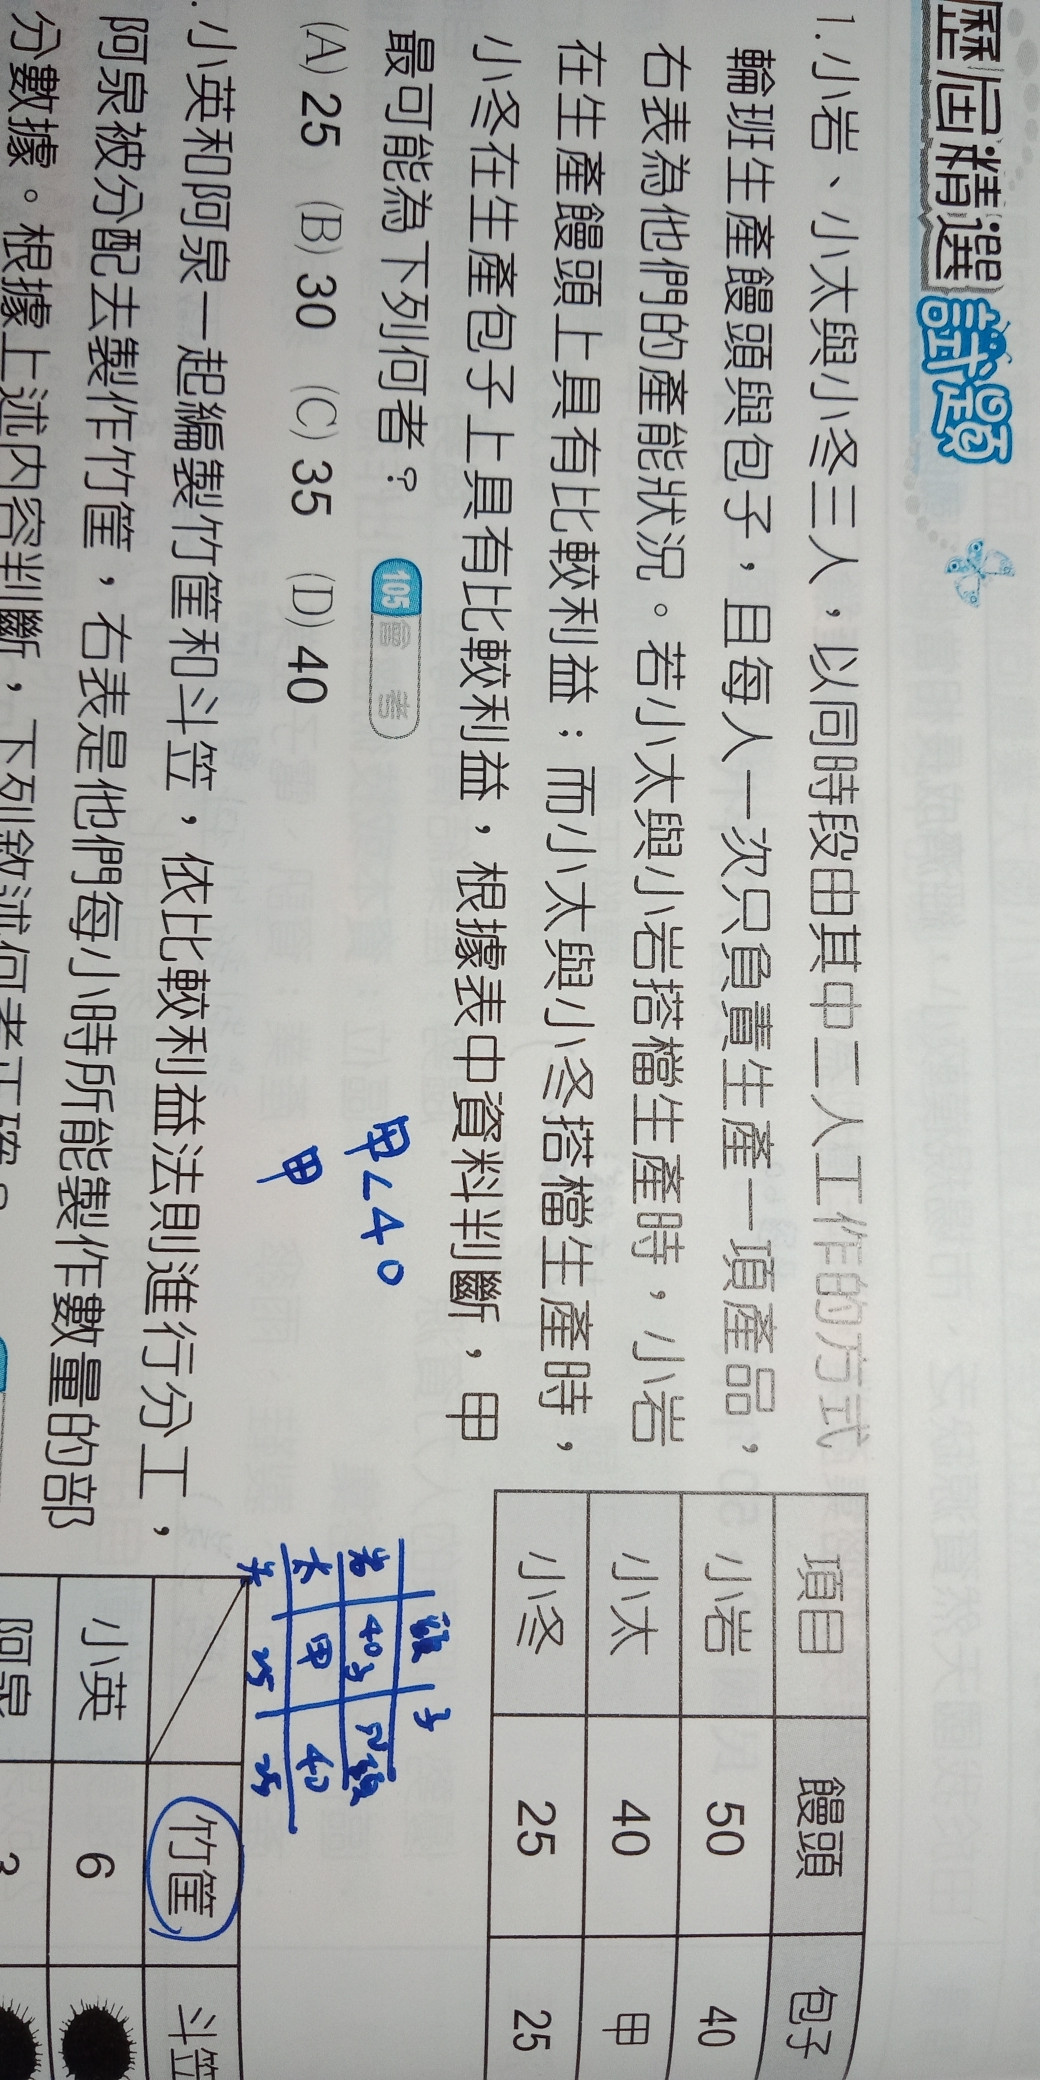 歷屆精選試題
1. 小岩、小太與小冬三人，以同時段由其中二人工作的方式
輪班生產饅頭與包子，且每人一次只負責生產一項產品，
右表為他們的產能狀況。若小太與小岩搭檔生產時，小岩
在生產饅頭上具有比較利益；而小太與小冬搭檔生產時，
小冬在生產包子上具有比較利益，根據表中資料判斷，甲
最可能為下列何者？ 105會考
(A) 25 (B) 30 (C) 35 (D) 40
項目 饅頭 包子
小岩 50 40
小太 40 甲
小冬 25 25
甲<40
甲
子
岩 40子
太 甲 40
25 25
.小英和阿泉一起編製竹筐和斗笠，依比較利益法則進行分工，
阿泉被分配去製作竹筐，右表是他們每小時所能製作數量的部
分數據。根據上述內容判斷，下列敘述何者正確？
竹筐 斗笠
小英 6
阿泉